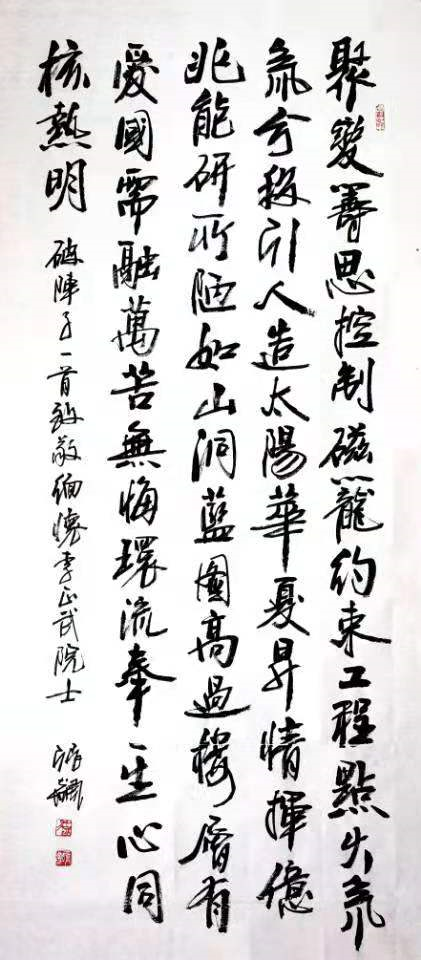 聚變籌思控制磁龍約束工程點火氘
氚引人造太陽華夏昇情揮億
兆能研所陋如山洞藍圖高過樓層有
愛國需融萬苦無悔環流奉一生心同
核熱明
破陣子一首致敬緬懷李正武院士